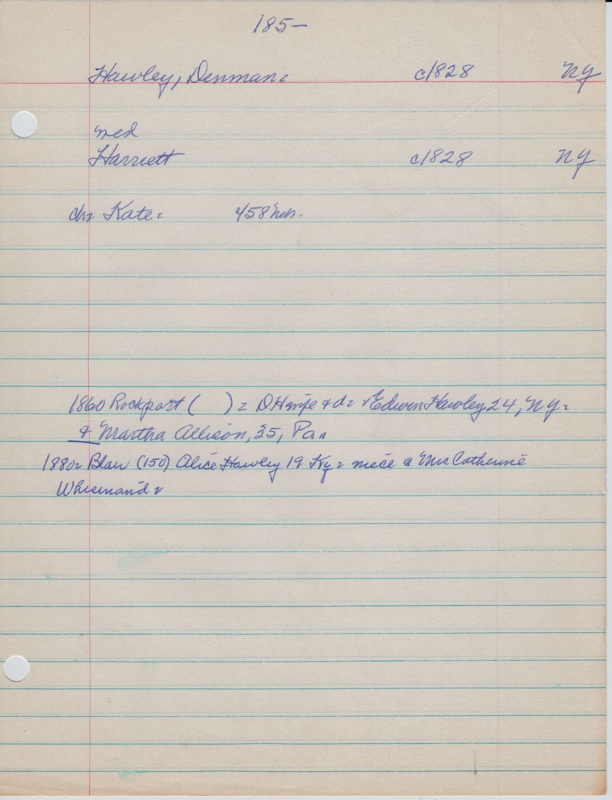 185-
Hawley, Denman. c1828 NY
med
Harriett c1828 NY
ch: Kate.
1860 Rockport ( ) = D H wife & d. & Edwin Hawley 24, NY.
& Martha Allison, 35, Pa.
1880. Blair (150) Alice Hawley 19 Ky. niece @ Mrs Catherine
Whisinand.